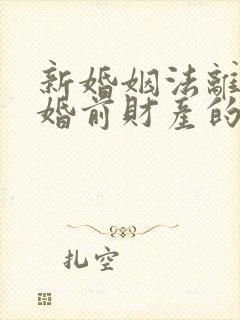 新婚姻法離
婚前財產的
扎空